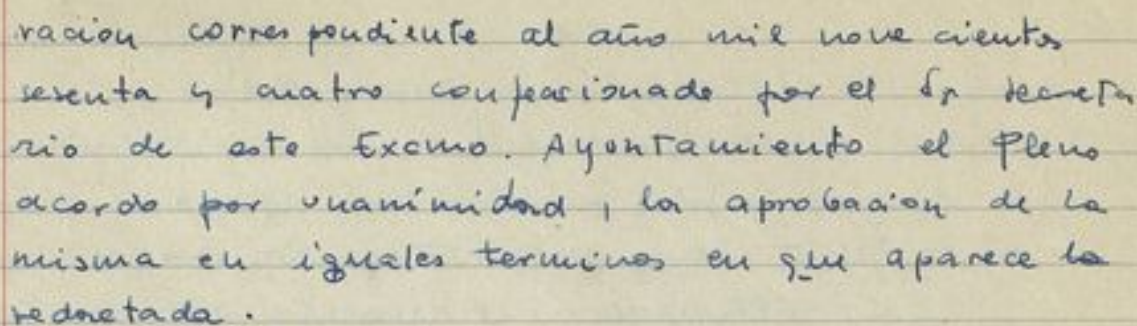 racion correspondiente al año mil nove cientos
sesenta y cuatro confeccionado por el Sr secreta
rio de este Excmo. Ayontamiento el Pleno
acordo por unanimidad, la aprobacion de la
misma en iguales terminos en que aparece
redactada.